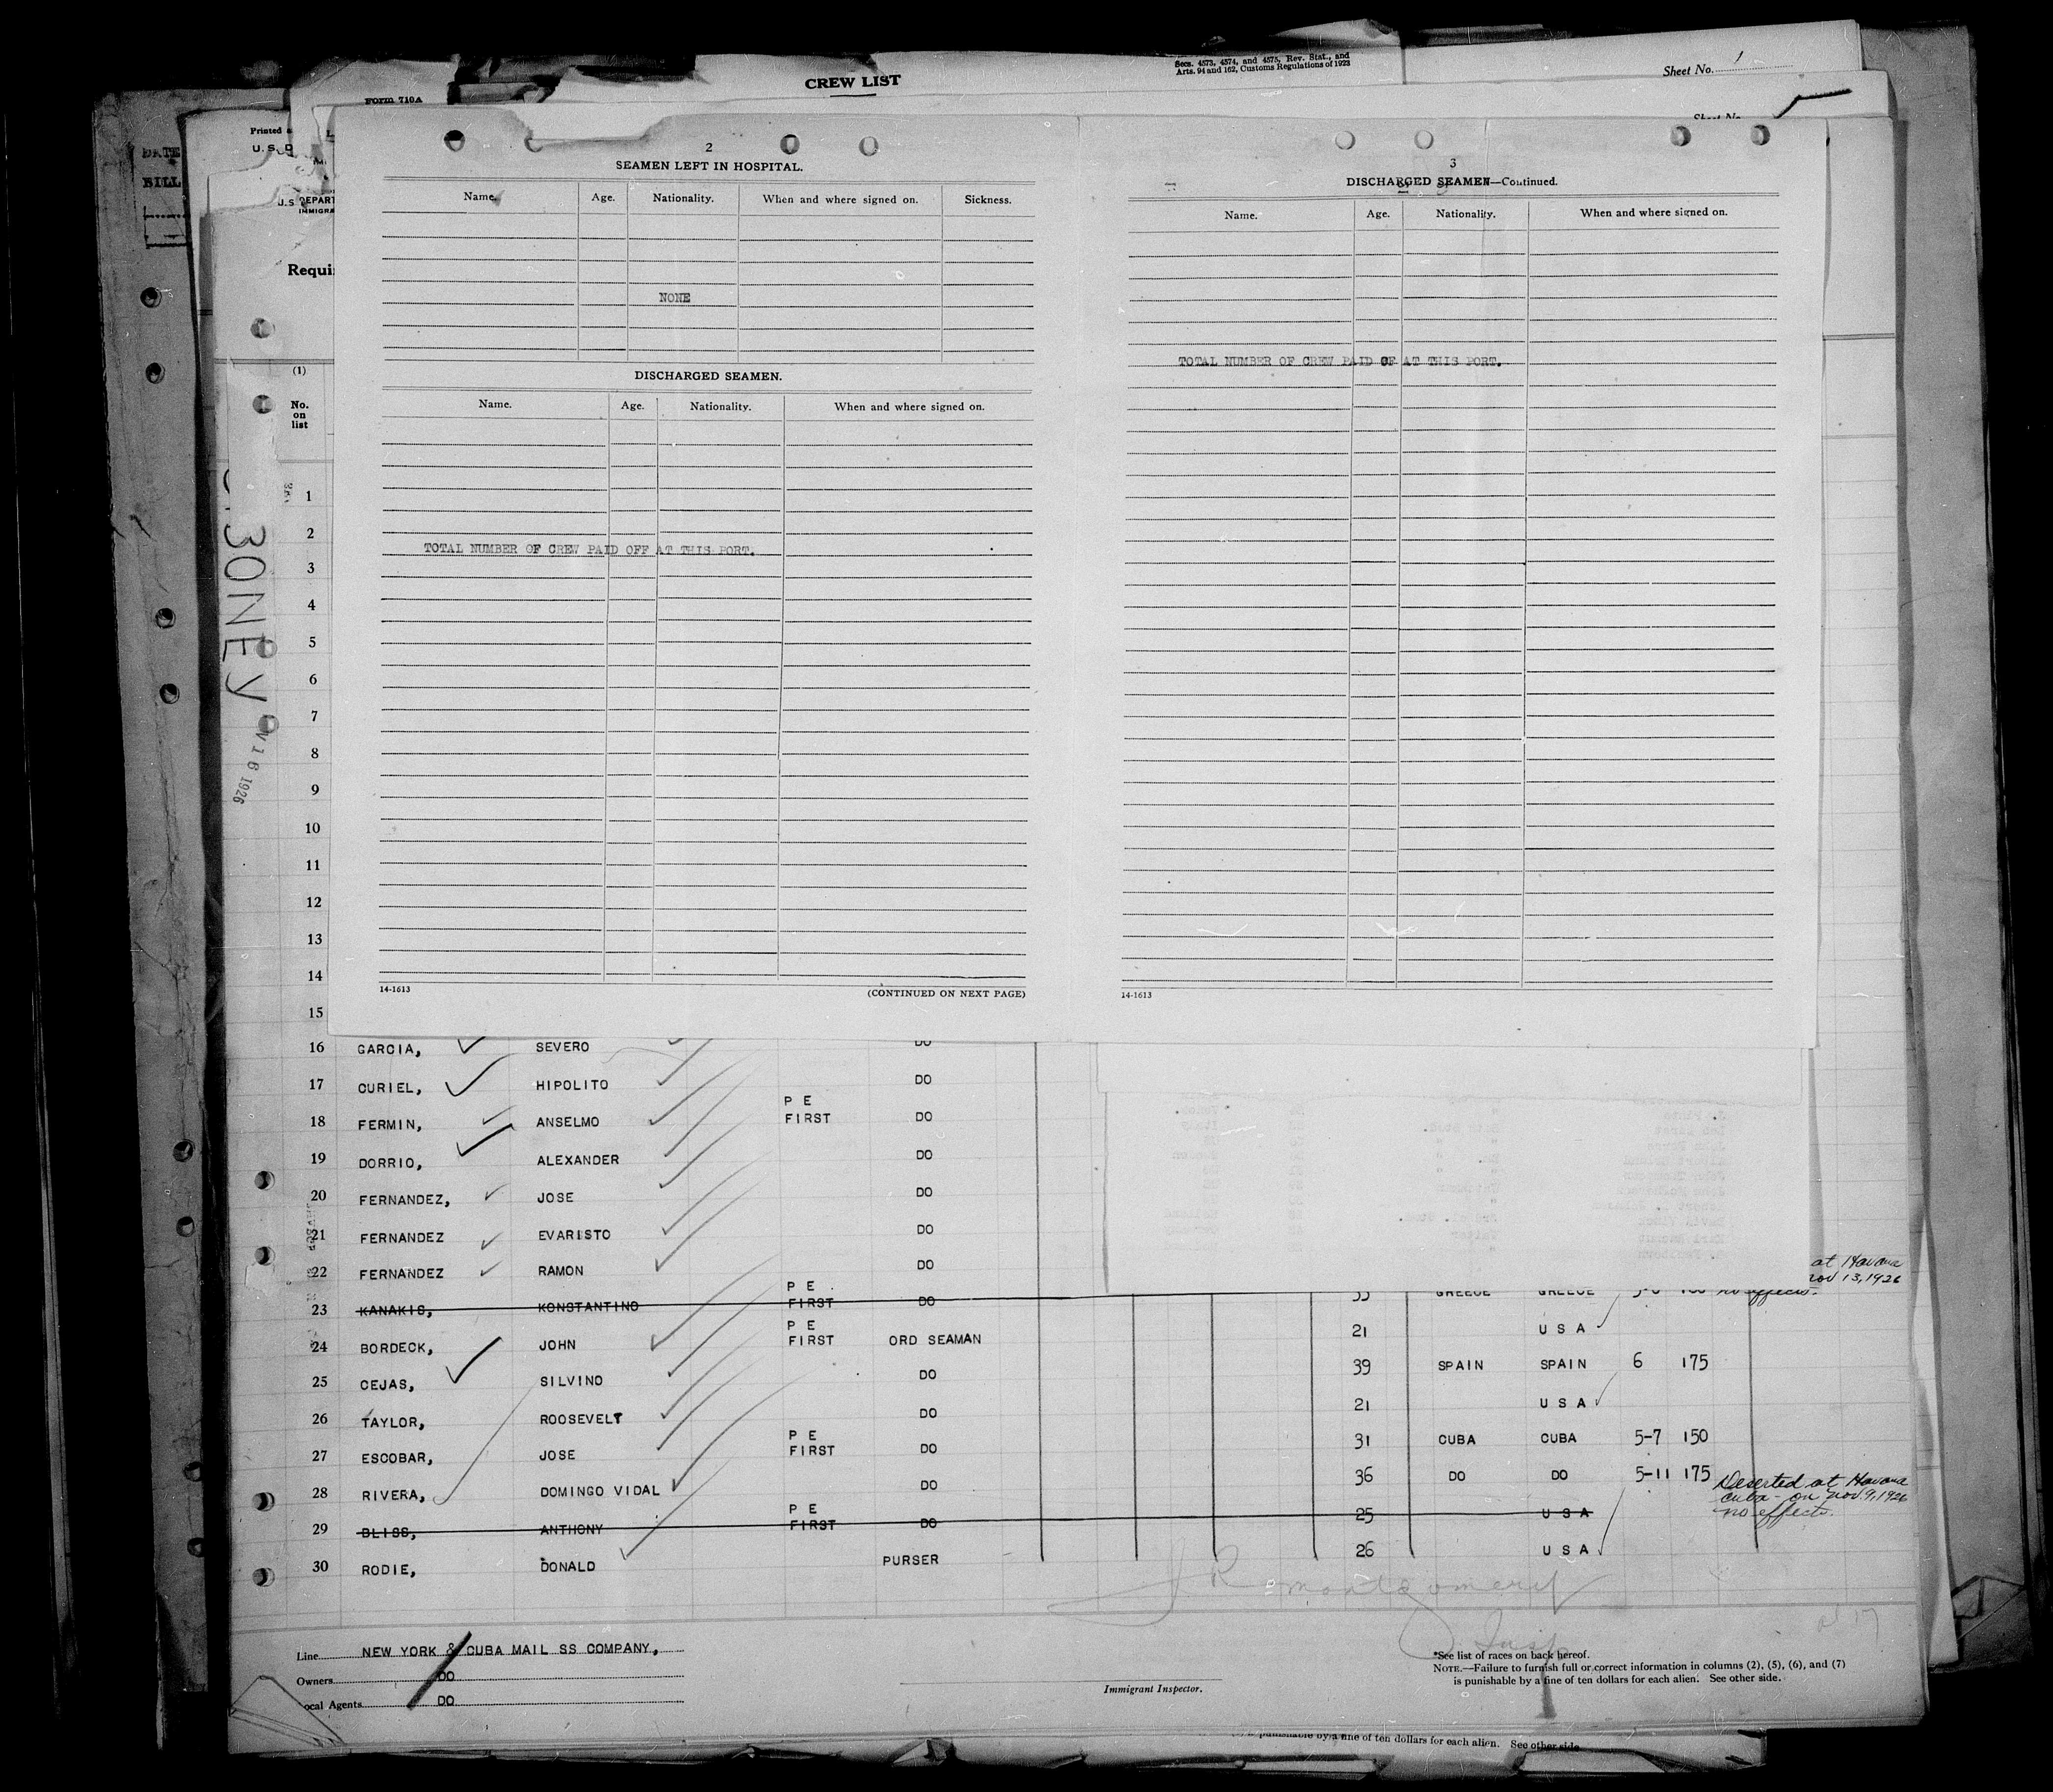 CREW LIST
Secs. 4573, 4574, and 4575, Rev. Stat., and
Arts. 94 and 162, Customs Regulations of 1923
Sheet No. 1
Form 710A
Printed
U. S. D
U.S. DEPART
IMMIGRA
Requi
(1)
No.
on
list
BONEY
V 16 1926
2
SEAMEN LEFT IN HOSPITAL.
Name. Age. Nationality. When and where signed on. Sickness.
NONE
DISCHARGED SEAMEN.
Name. Age. Nationality. When and where signed on.
TOTAL NUMBER OF CREW PAID OFF AT THIS PORT.
14-1613 (CONTINUED ON NEXT PAGE)
3
DISCHARGED SEAMEN—Continued.
Name. Age. Nationality. When and where signed on.
TOTAL NUMBER OF CREW PAID OF AT THIS PORT.
14-1613
1
2
3
4
5
6
7
8
9
10
11
12
13
14
15
16 GARCIA, SEVERO DO
17 CURIEL, HIPOLITO DO
18 FERMIN, ANSELMO P E FIRST DO
19 DORRIO, ALEXANDER DO
20 FERNANDEZ, JOSE DO
21 FERNANDEZ EVARISTO DO
22 FERNANDEZ RAMON DO
at Havana
nov 13, 1926
no effects.
23 KANAKIS, KONSTANTINO P E FIRST DO 33 GREECE GREECE
24 BORDECK, JOHN P E FIRST ORD SEAMAN 21 U S A
25 CEJAS, SILVINO DO 39 SPAIN SPAIN 6 175
26 TAYLOR, ROOSEVELT DO 21 U S A
27 ESCOBAR, JOSE P E FIRST DO 31 CUBA CUBA 5-7 150
28 RIVERA, DOMINGO VIDAL DO 36 DO DO 5-11 175
29 BLISS, ANTHONY P E FIRST DO 25 U S A
Deserted at Havana
Cuba - on nov. 9, 1926
no effects.
30 RODIE, DONALD PURSER 26 U S A
J R Montgomery
Insp
Line NEW YORK & CUBA MAIL SS COMPANY,
Owners DO
ocal Agents DO
Immigrant Inspector.
*See list of races on back hereof.
NOTE.—Failure to furnish full or correct information in columns (2), (5), (6), and (7)
is punishable by a fine of ten dollars for each alien. See other side.
punishable by a fine of ten dollars for each alien. See other side